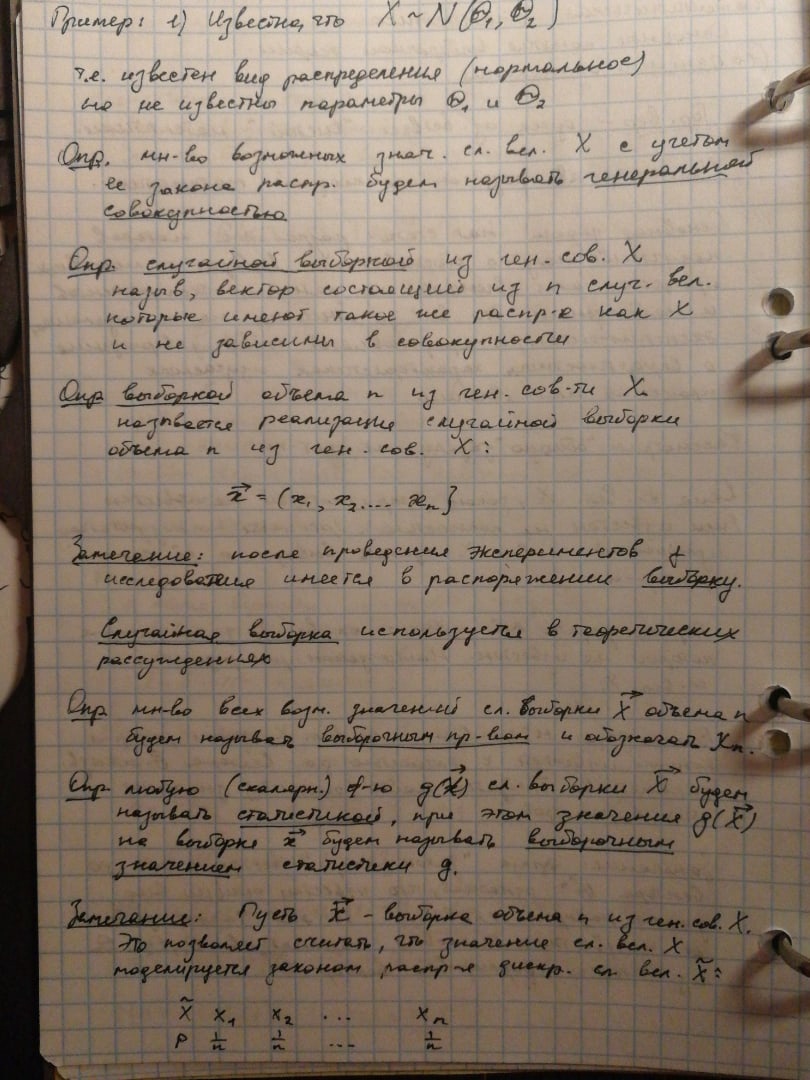 Пример: 1) Известно, что X ~ N(θ₁, θ₂)
т.е. известен вид распределения (нормальное)
но не известны параметры θ₁ и θ₂
Опр. мн-во возможных знач. сл. вел. X с учетом
ее закона распр. будем называть генеральной
совокупностью
Опр. случайной выборкой из ген. сов. X
назыв, вектор состоящий из n случ. вел.
которые имеют такое же распр-е как X
и не зависимы в совокупности
Опр выборкой объема n из ген. сов-ти X
называется реализация случайной выборки
объема n из ген. сов. X:
x⃗ = (x₁, x₂ .... xₙ}
Замечание: после проведения экспериментов
исследователя имеется в распоряжении выборку.
Случайная выборка используется в теоретических
рассуждениях
Опр мн-во всех возм. значений сл. выборки X⃗ объема n
будем называть выборочным пр-вом и обозначать Xₙ.
Опр любую (скалярн.) ф-ю g(X⃗) сл. выборки X⃗ будем
называть статистикой, при этом значения g(X⃗)
на выборке x⃗ будем называть выборочным
значением статистики g.
Замечание: Пусть x⃗ - выборка объема n из ген. сов. X.
Это позволяет считать, что значение сл. вел. X
моделируется законом распр-я дискр. сл. вел. X̃:
X̃ x₁ x₂ ... xₙ
P 1/n 1/n .... 1/n